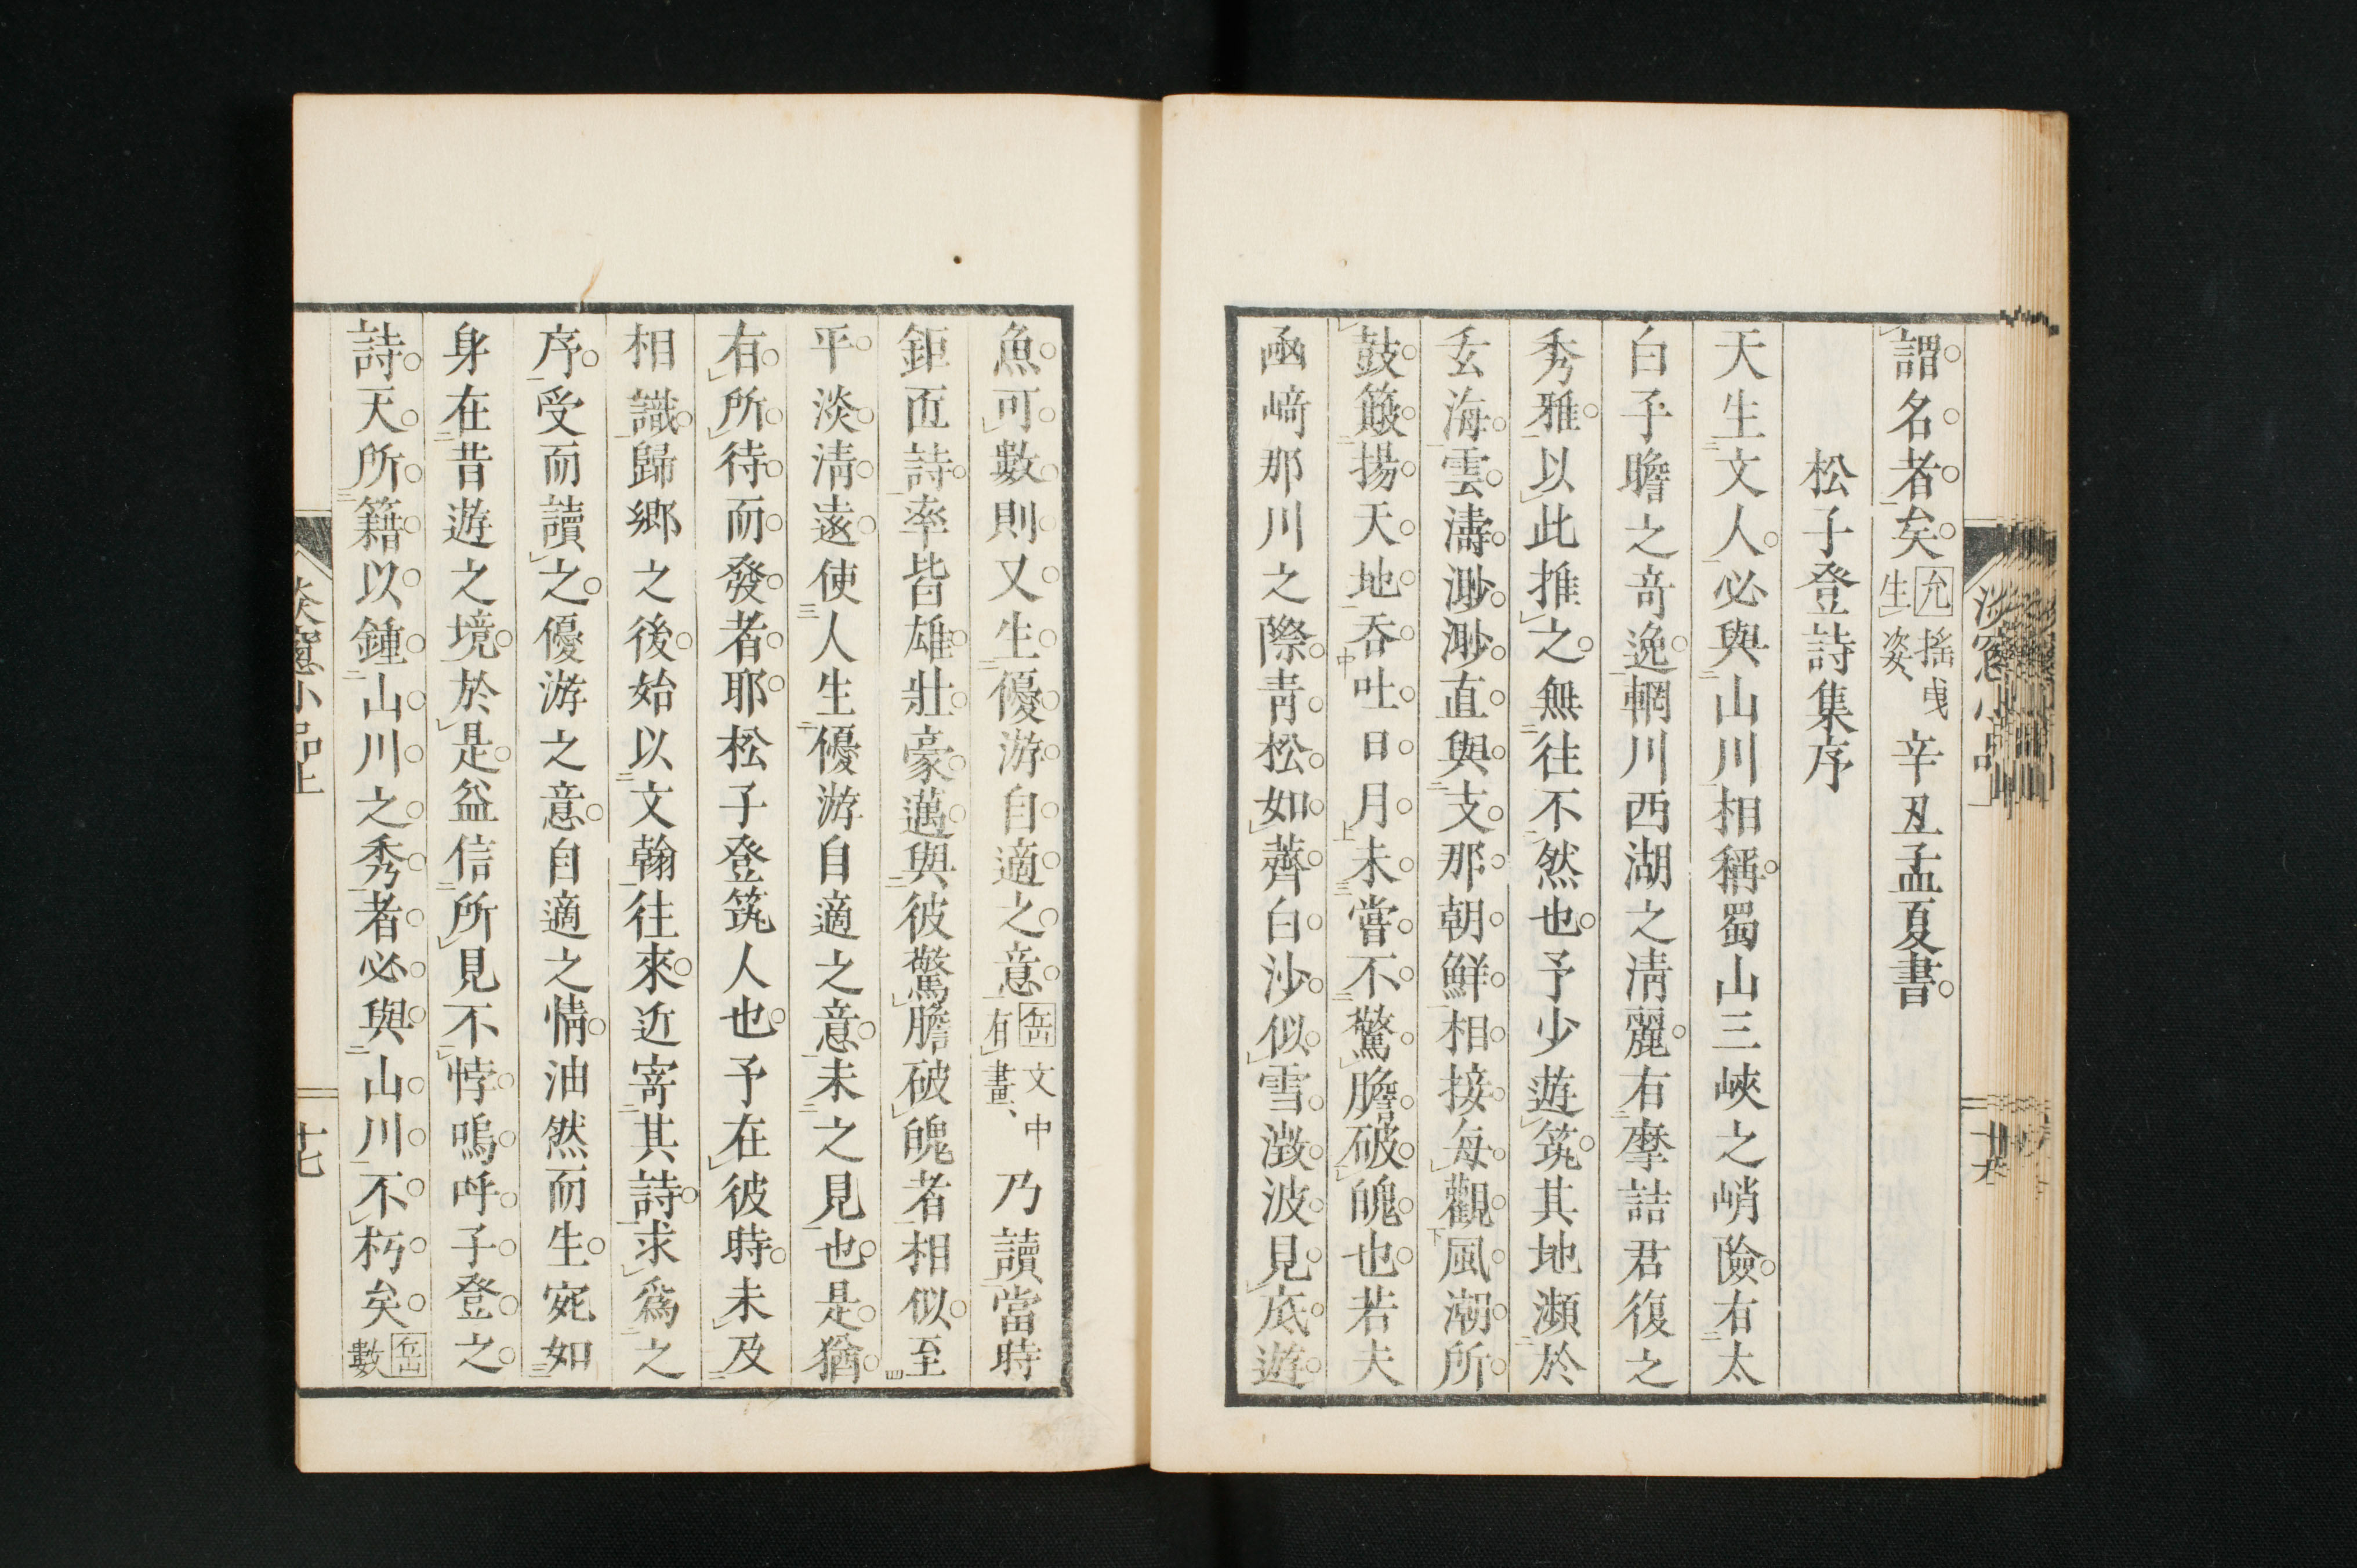 謂名者矣允搖曳生姿辛丑孟夏書
松子登詩集序
天生文人必與山川相稱蜀山三峽之峭險有太
白子瞻之奇逸輞川西湖之淸麗有摩詰君復之
秀雅以此推之無往不然也予少遊筑其地瀕於
玄海雲濤渺渺直與支那朝鮮相接每觀風潮所
鼓簸揚天地吞吐日月未嘗不驚膽破魄也若夫
凾﨑那川之際靑松如薺白沙似雪澂波見底遊
魚可數則又生優游自適之意岳文中有畫、乃讀當時
鉅匠詩率皆雄壯豪邁與彼驚膽破魄者相似至
平淡淸遠使人生優游自適之意未之見也是猶
有所待而發者耶松子登筑人也予在彼時未及
相識歸鄉之後始以文翰往來近寄其詩求爲之
序受而讀之優游之意自適之情油然而生宛如
身在昔遊之境於是益信所見不悖嗚呼子登之
詩天所籍以鍾山川之秀者必與山川不朽矣岳數
淡窻小品上
十七